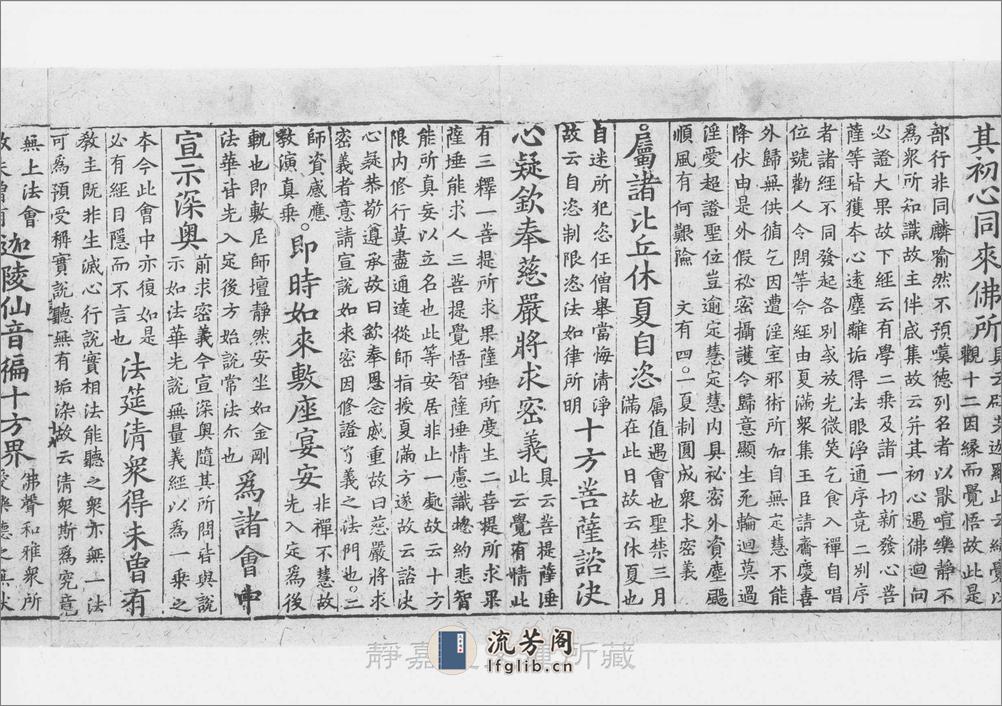 其初心同來佛所
觀十二因緣而覺悟故此是
部行非同麟喻然不預嘆德列名者以猒喧樂靜不
為衆所知識故主伴咸集故云并其初心遇佛迴向
必證大果故下經云有學二乗及諸一切新發心菩
薩等皆獲夲心遠塵離垢得法眼淨通序竟 二別序
者諸經不同發起各別或放光微笑乞食入禪自唱
位號勸人令問等今經由夏滿衆集王臣請齋慶喜
外歸無供循乞因遭淫室邪術所加自無定慧不能
降伏由是外假祕密攝護令歸意顯生死輪迴莫過
淫愛超證聖位豈逾定慧定慧内具祕密外資塵颺
順風有何艱隃 文有四。一夏制圓成衆求密義
屬諸比丘休夏自恣
屬值遇會也聖禁三月
滿在此日故云休夏也
自迷所犯恣任僧舉當悔清淨
故云自恣制限恣法如律所明
十方菩薩諮決
心疑欽奉慈嚴將求密義
具云菩提薩埵
此云覺有情此
有三釋一菩提所求果薩埵所度生二菩提所求果
薩埵能求人三菩提覺悟智薩埵情慮識揔約悲智
能所真妄以立名也此等安居非止一處故云十方
限内修行莫盡通達從師指授夏滿方遂故云諮決
心疑恭敬遵承故曰欽奉恩念威重故曰慈嚴將求
密義者意請宣說如來密因修證了義之法門也。二
師資感應
教演真乗。
即時如來敷座宴安
非禪不慧故
先入定為後
軌也即敷尼師壇靜然安坐如金剛
法華皆先入定後方始說常法尓也
為諸會中
宣示深奥
前求密義今宣深奥隨其所問皆與說
示如法華先說無量義經以為一乗之
夲今此會中亦復如是
必有經目隱而不言也
法筵清衆得未曽有
教主既非生滅心行說實相法能聽之衆亦無一法
可為預受稱實說聽無有垢染故云清衆斯為究竟
無上法會
故未曽有
迦陵仙音徧十方界
佛聲和雅衆所
流芳阁
lfglib.cn
靜嘉 所藏